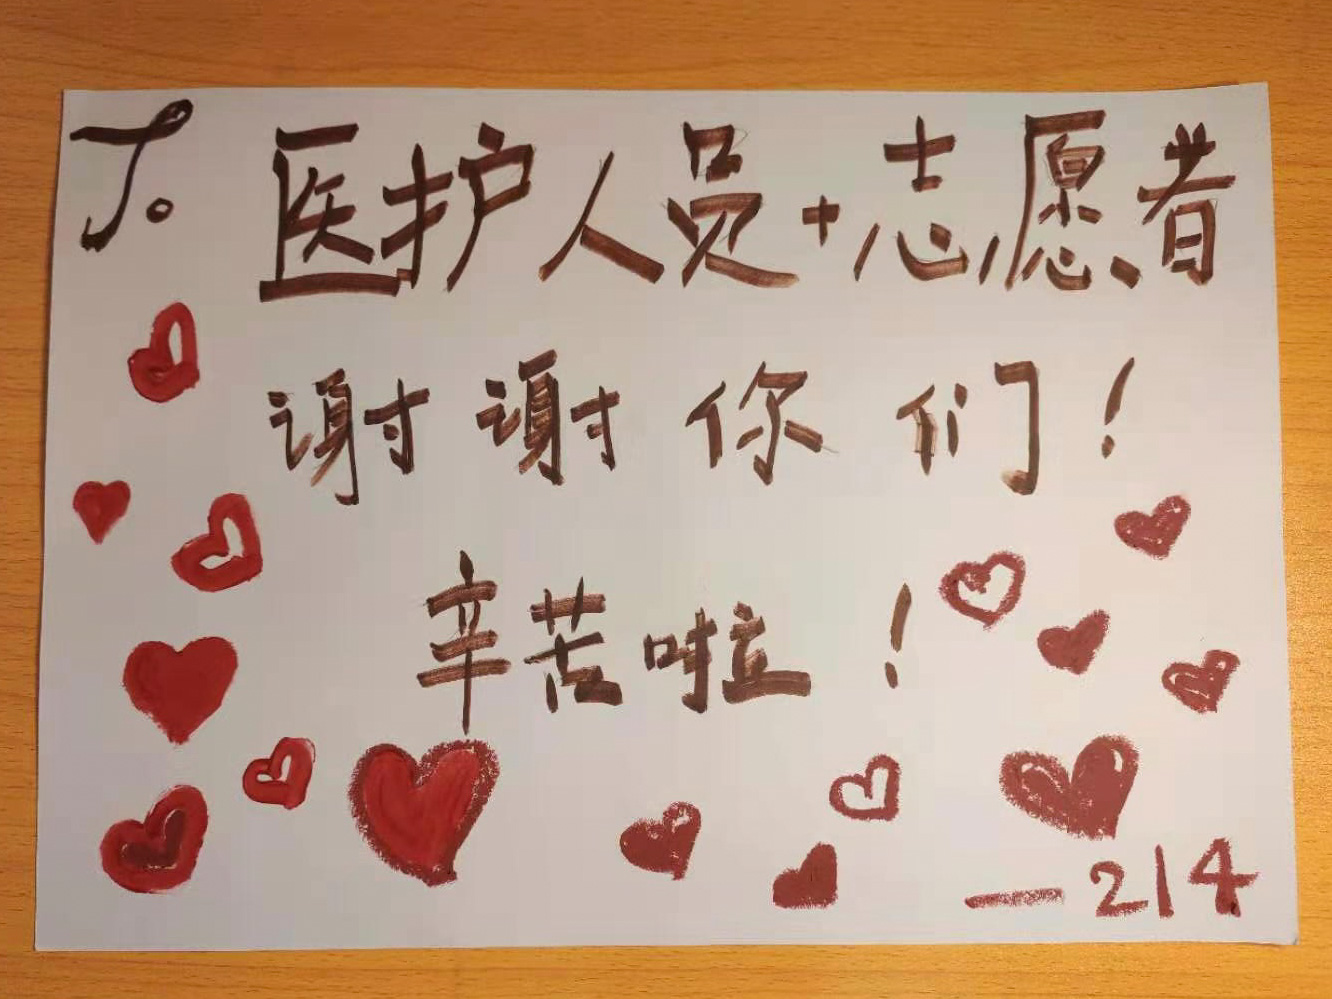 To 医护人员+志愿者
谢谢你们!
辛苦啦!
—214